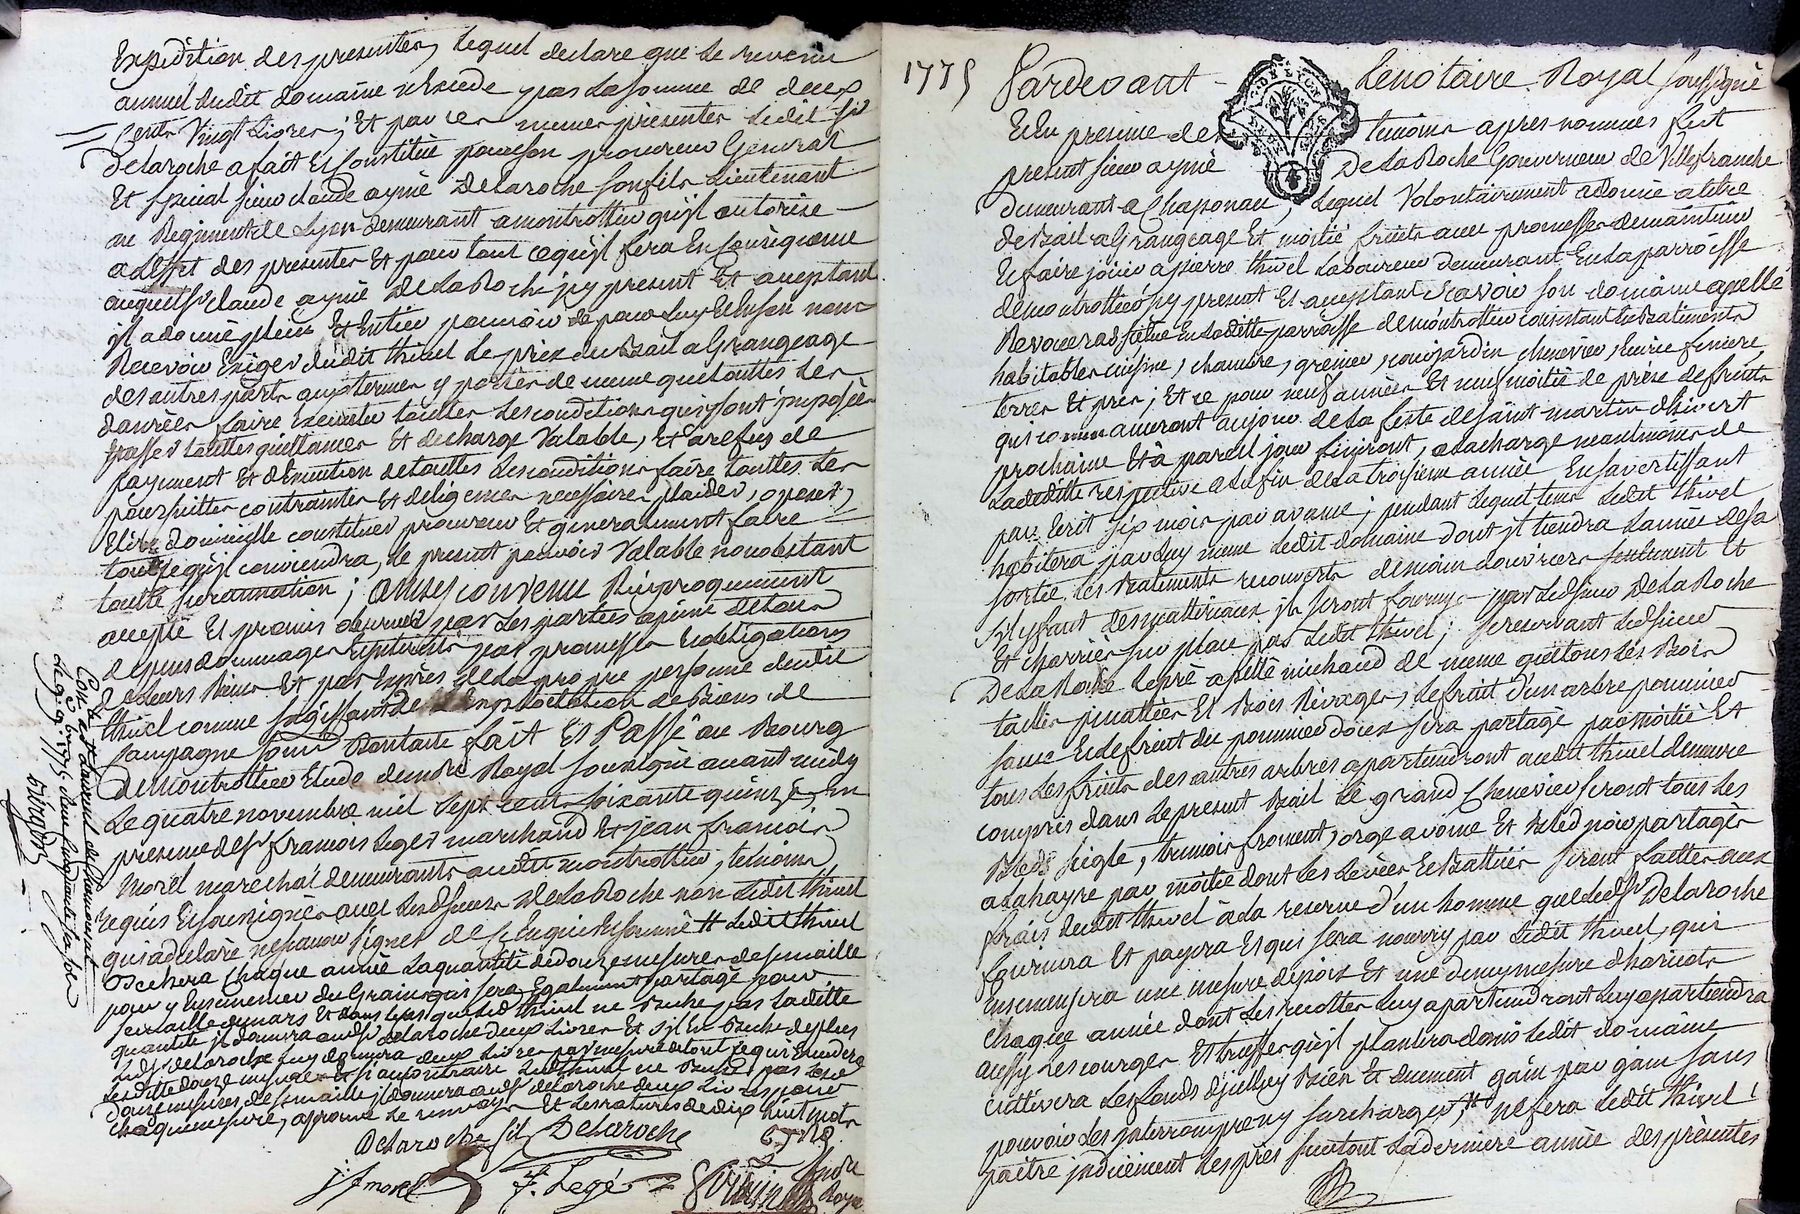 Expedition des presentes, lequel declare que le revenu
annuel dudit domaine n'Excede pas la somme de deux
Cents Vingt livres; Et par ces memes presentes ledit sr
Delaroche a fait Et Constitué pour son procureur General
Et special sieur claude aymé Delaroche son fils Lieutenant
au Regiment de Lyon demeurant a montrottier qu'yl autorise
a l'effet des presentes Et pour tout ce qu'yl fera En Consequence
auquel sr claude aymé De la Roche jcy present Et acceptant
jl a donné plein Et Entier pouvoir de pour luy Et En son nom
Recevoir Exiger dudit thivel le prix du Bail a Grangeage
des autres parts aux termes y portés de meme que touttes les
danrées faire Executer touttes les conditions qui y sont jmposées
passer touttes quittances Et decharge Valable, Et a refus de
payement Et d'Execution de touttes les conditions faire touttes les
poursuittes contraintes Et diligences necessaires plaider, oposer,
Elire domicille constituer procureur Et generalement faire
tout ce qu'yl conviendra, le present pouvoir Valable nonobstant
toutte surannation; ainsy convenu Reciproquement
accepté Et promis observer par les parties a peine de tous
depens dommages Et interets par promesses Et obligations
de leurs Biens Et par Exprès de la propre personne dudit
thivel comme s'agissant de l'Exploitation de Biens de
campagne sous Contrainte fait Et Passé au Bourg
De montrottier Etude du notre Royal soussigné avant midy
Le quatre novembre mil sept cent soixante quinze, En
presence de sr francois leger marchand Et jean francois
Morel marechal demeurants audit montrottier, temoins
requis Et soussignés avec lesd. sieurs De la Roche non ledit thivel
qui a declaré ne scavoir signer de ce Enquis Et sommé # ledit thivel
Bechera chaque année la quantité de douze mesures de semaille
pour y Ensemencer du Grain qui sera Egalement partagé pour
semaille de mars Et dans le cas que led. thivel ne Beche pas laditte
quantité jl donnera aud. sr delaroche deux livres Et s'jl En Beche de plus
led. sr delaroche luy donnera deux livres par mesure de tout ce qui Excedera
lesditte douze mesures Et si au contraire led. thivel ne Beche pas lesd.
douze mesures de semaille jl donnera aud. sr delaroche deux livres pour
chaque mesure, aprouvé le renvoy Et les ratures de dix huit mots
Delaroche fils Delaroche
j. f. morel f. Legé
notre
Roya
1775 Pardevant Le notaire Royal soussigné
Et En presence des temoins apres nommés fut
present sieur aymé De la Roche Gouverneur de Villefranche
demeurant a Chaponau, lequel Volontairement a donné a titre
de Bail a Grangeage Et moitié fruits avec promesse de maintenir
Et faire jouir a pierre thivel laboureur demeurant En la parroisse
de montrottier jcy present Et acceptant scavoir son domaine apellé
Revoceras situé En laditte parroisse de montrottier consistant En Batiments
habitables cuisine, chambre, grenier, cour, jardin chenevier, Ecurie feniere,
terres Et prés; Et ce pour neuf années Et neuf moitié de prise de fruits
qui commanceront au jour de la feste de saint martin d'hivert
prochaine Et a pareil jour finiront, a la charge neantmoins de
la deditte respective a la fin de la troisieme année En s'avertissant
par Ecrit six mois par avance; pendant lequel tems ledit thivel
habitera par luy meme ledit domaine dont jl tiendra l'année de sa
sortie les Batiments recouverts de main d'ouvriers seulement Et
s'jl y faut des matteriaux jls seront fournys par led. sieur De la Roche
Et charriés sur place par ledit thivel; se reservant led. sieur
De la Roche le pré apellé michaud de meme que tous les Bois
taillis pinattées Et Bois Rivages, le fruit d'un arbre pommier
sauf Et le fruit du pommier doux sera partagé par moitié Et
tous les fruits des autres arbres apartiendront audit thivel demeure
compris dans le present Bail le grand Chenevier seront tous les
Bleds seigle, tremois froment, orge avoine Et Bled noir partagés
a la hayre par moitié dont les levées Et Battiées seront faittes aux
frais dudit thivel a la reserve d'un homme que led. sr Delaroche
fournira Et payera Et qui sera nourry par ledit thivel, qui
Ensemensera une mesure de pois Et une demy mesure d'haricots
chaque année dont les recoltes luy apartiendront luy apartiendra
aussy les courges Et truffes qu'jl plantera dans ledit domaine
cultivera les fonds d'jcelluy Bien Et duement gain par gain sans
pouvoir les jnterrompre ny surcharger, # ne fera ledit thivel
paitre jndiciement les prés surtout la derniere année des presentes